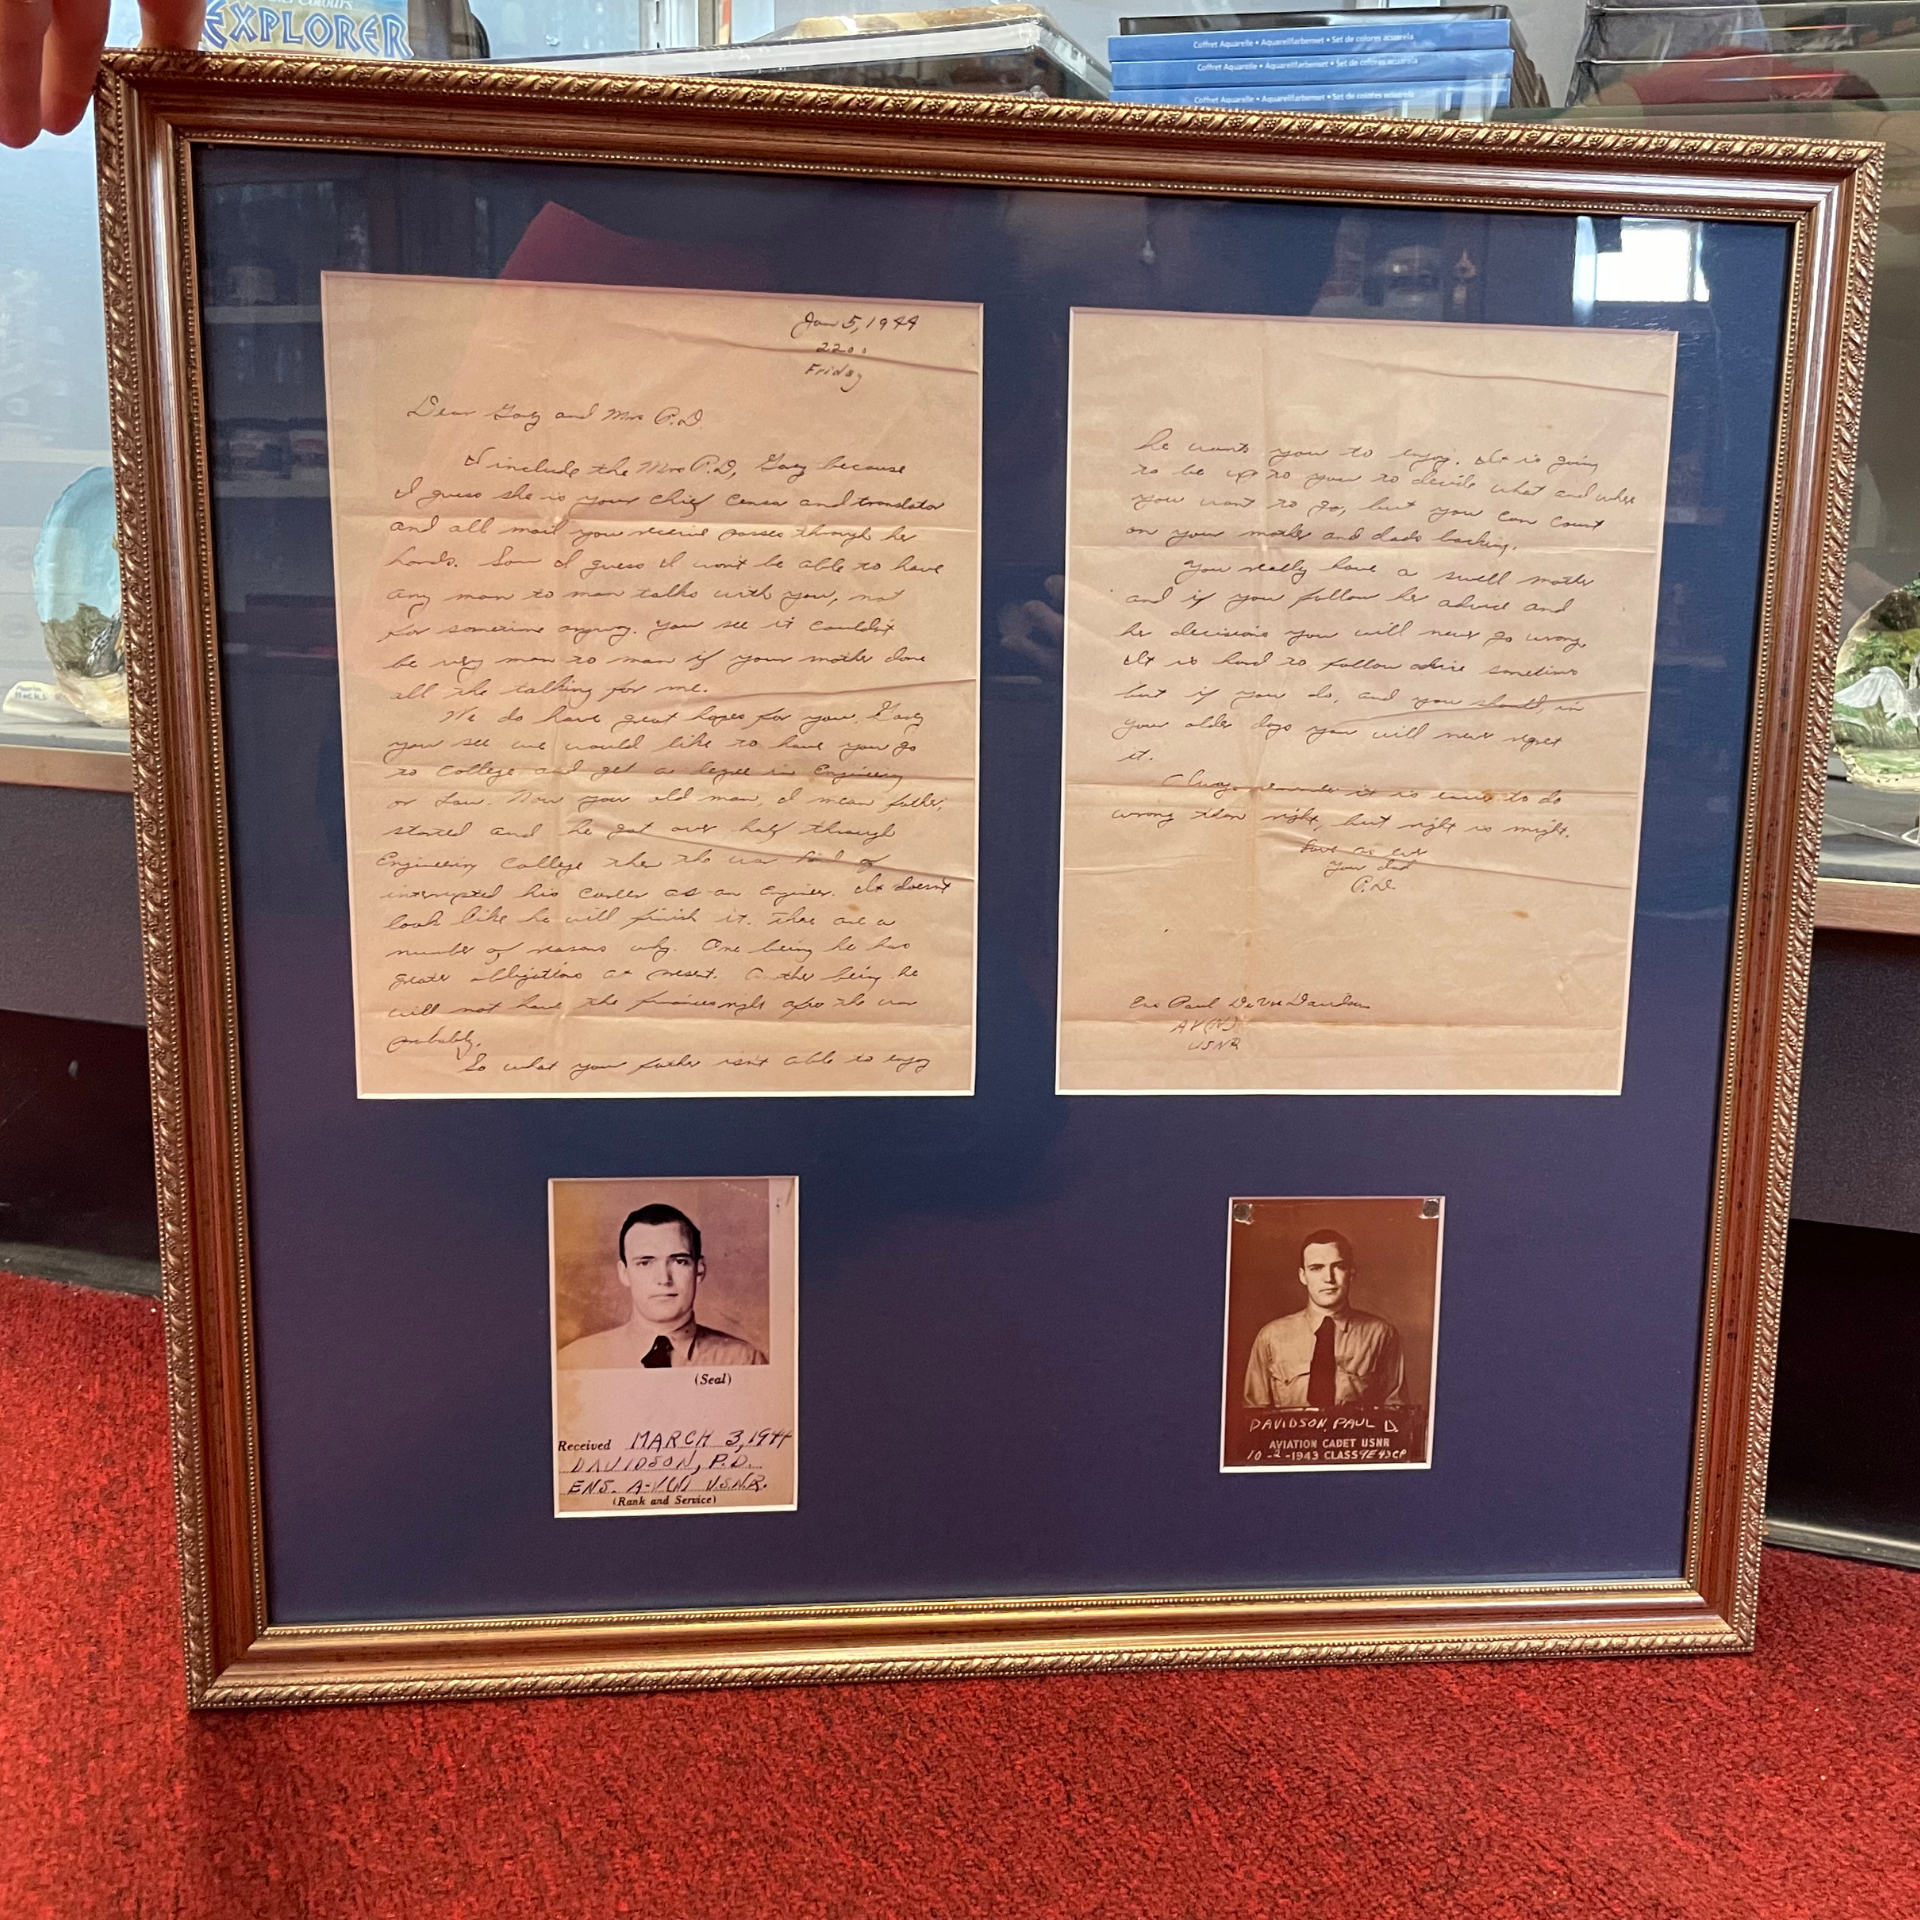 EXPLORER
Coffret Aquarelle • Aquarellfarbenset • Set de colores acuarela
Coffret Aquarelle • Aquarellfarbenset • Set de colores acuarela
Coffret Aquarelle • Aquarellfarbenset • Set de colores acuarela
Jan 5, 1944
2200
Friday
Dear Gary and Mrs P.D.
I include the Mrs P.D, Gary because
I guess she is your chief censor and translator
and all mail you receive passes through her
hands. So I guess I won't be able to have
any man to man talks with you, not
for sometime anyway. You see it couldn't
be very man to man if your mother done
all the talking for me.
We do have great hopes for you, Gary
you see we would like to have you go
to college and get a degree in Engineering
or Law. Now your old man, I mean father,
started and he got over half through
Engineering College then the war kind of
interrupted his career as an engineer. It doesn't
look like he will finish it. There are a
number of reasons why. One being he has
greater obligations at present. Another being he
will not have the finances right after the war
probably.
So what your father isn't able to enjoy
he wants you to enjoy. It is going
to be up to you to decide what and where
you want to go, but you can count
on your mother and dads backing.
You really have a swell mother
and if you follow her advice and
her decisions you will never go wrong.
It is hard to follow advice sometimes
but if you do, and you should, in
your older days you will never regret
it.
Always remember it is easier to do
wrong than right, but right is might.
Love as ever
Your dad
P.D.
Ens Paul Davidson
AV(N)
USNR
(Seal)
Received MARCH 3, 1944
DAVIDSON, P.D.
ENS. A-V(N) U.S.N.R.
(Rank and Service)
DAVIDSON, PAUL D.
AVIATION CADET USNR
10-2-1943 CLASS 9E 43CP